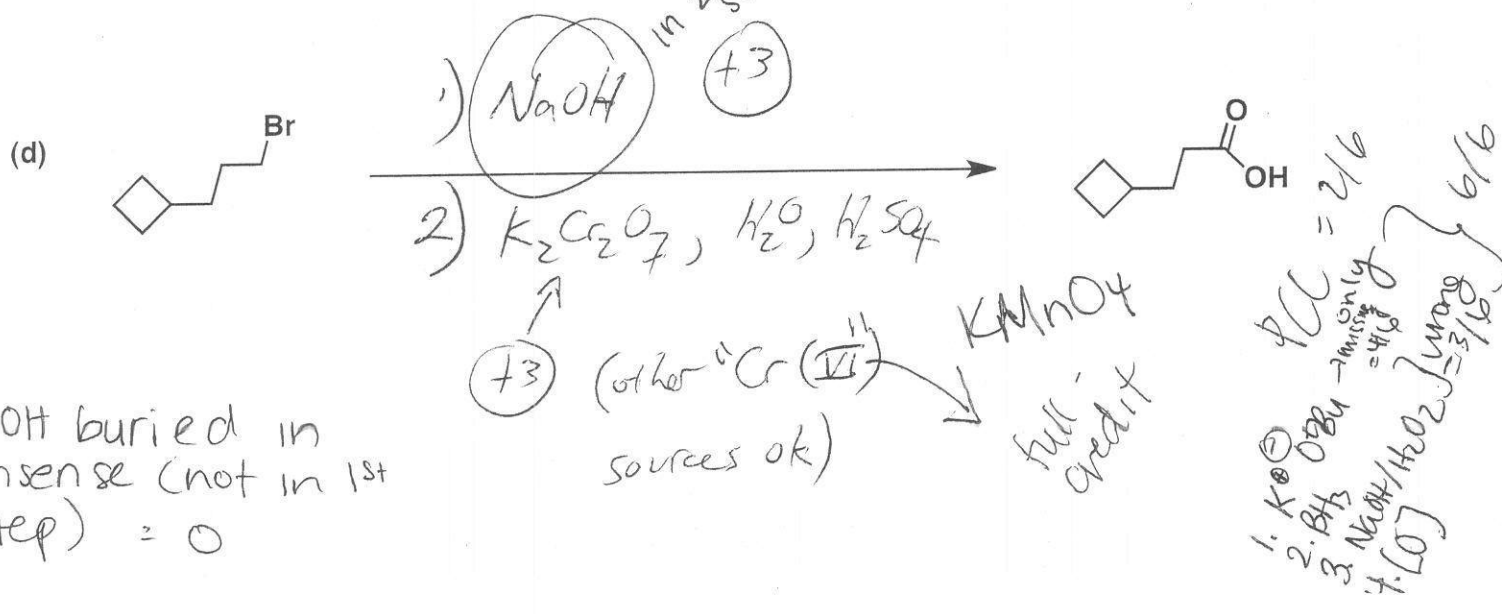 (d)
Br
1) NaOH
+3
2) K₂Cr₂O₇, H₂O, H₂SO₄
+3
(other "Cr (VI)"
sources ok)
KMnO4
full
credit
O
OH
OH buried in
nsense (not in 1st
ep) = 0
PCC = 2/6
1. K⊕ ⊖OtBu → missing only = 4/6
2. BH₃
3. NaOH/H2O2
4. [O]
wrong
= 3/6
6/6